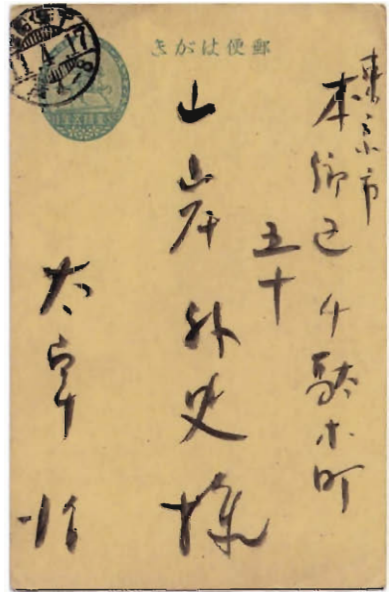 郵便はがき
東京市
本郷区千駄木町
五十
山岸外史様
太宰治